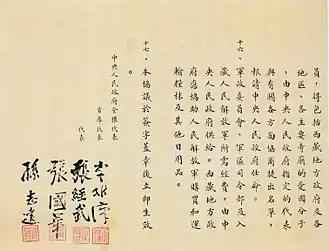 員，得包括西藏地方政府及各
地區、各主要寺廟的愛國分子
，由中央人民政府指定的代表
與有關各方面協商提出名單，
報請中央人民政府任命。
十六、軍政委員會、軍區司令部及入
藏人民解放軍所需經費，由中
央人民政府供給。西藏地方政
府應協助人民解放軍購買和運
輸糧秣及其他日用品。
十七、本協議於簽字蓋章後立即生效
中央人民政府全權代表
首席代表
李維漢
代表
張經武
張國華
孫志遠